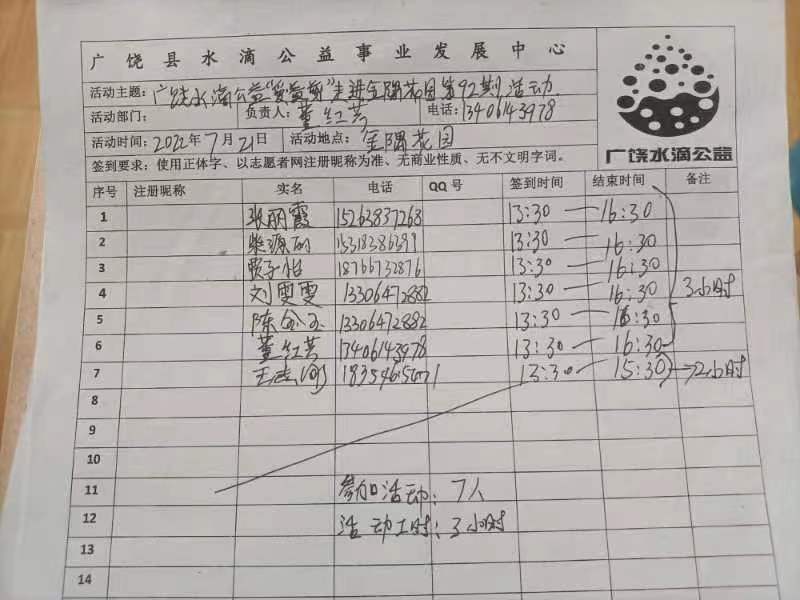 广饶县水滴公益事业发展中心
活动主题: 广饶水滴公益"爱益剪"走进金隅花园第92期活动.
活动部门: 负责人: 董红芸 电话: 13406143978
活动时间: 2022年7月21日 活动地点: 金隅花园
签到要求: 使用正体字、以志愿者网注册昵称为准、无商业性质、无不文明字词。
广饶水滴公益
序号 注册昵称 实名 电话 QQ号 签到时间 结束时间 备注
1 张丽霞 15263837268 13:30 — 16:30
2 柴源 15318386399 13:30 — 16:30
3 贾子怡 18766732876 13:30 — 16:30
4 刘雯雯 13306472882 13:30 — 16:30 3小时
5 陈 13306472882 13:30 — 16:30
6 董红芸 13406143978 13:30 — 16:30
7 王 13:30 15:30 →2小时
8
9
10
11 参加活动: 7人
12 活动工时: 3小时
13
14